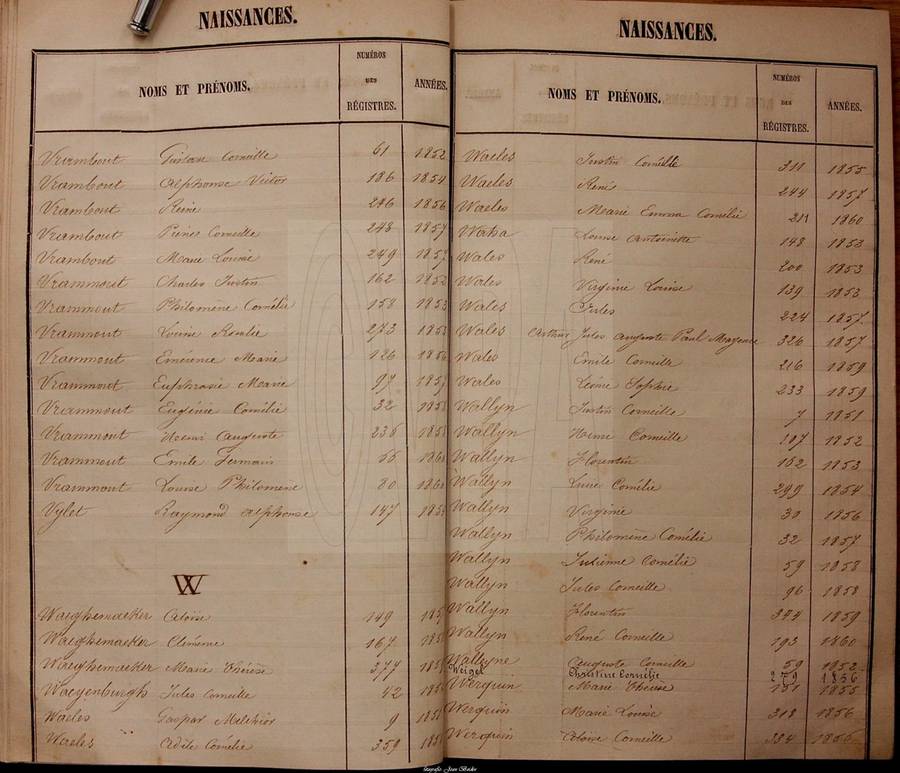 NAISSANCES.
NOMS ET PRÉNOMS. NUMÉROS DES RÉGISTRES. ANNÉES.
Vrambout Gustave Corneille 61 1852
Vrambout Alphonse Victor 186 1854
Vrambout Reine 246 1856
Vrambout Corneille 248 1857
Vrambout Marie Louise 249 185
Vrammout Charles Justin 162 1852
Vrammout Philomène Cornélie 158 1853
Vrammout Louise Rosalie 273 185
Vrammout Emérence Marie 126 185
Vrammout Euphrasie Marie 97 185
Vrammout Eugénie Cornélie 32 185
Vrammout Henri Auguste 236 185
Vrammout Emile Germain 186
Vrammout Louise Philomène 80 186
Vylet Raymond Alphonse 147 185
W
Waeghemaeker Céloïse 149 185
Waeghemaeker Clémence 167 185
Waeghemaeker Marie Thérèse 377 185
Waeyenburgh Jules Corneille 42 185
Waeles Gaspar Melchior 9 185
Waeles Adile Cornélie 359 185
NAISSANCES.
NOMS ET PRÉNOMS. NUMÉROS DES RÉGISTRES. ANNÉES.
Waeles Justin Corneille 311 1855
Waeles René 244 1857
Waeles Marie Emma Cornélie 211 1860
Waha Louise Antoinette 148 1853
Wales René 200 1853
Wales Virginie Louise 139 1853
Wales Jules 224 1857
Wales Arthur Jules Auguste Paul 326 1857
Wales Emile Corneille 216 1859
Wales Léonie Sophie 233 1859
Wallyn Justin Corneille 7 1851
Wallyn Henri Corneille 187 1852
Wallyn Florentin 152 1853
Wallyn Lucie Cornélie 299 1854
Wallyn Virginie 30 1856
Wallyn Philomène Cornélie 32 1857
Wallyn Julienne Cornélie 59 1858
Wallyn Jules Corneille 96 1858
Wallyn Florentin 344 1859
Wallyn René Corneille 193 1860
Wallyne Auguste Corneille 59 1852
Weigel Christine Cornélie 279 1856
Werquin Marie Thérèse 151 1855
Werquin Marie Louise 318 1856
Werquin Céloïse Corneille 334 1856